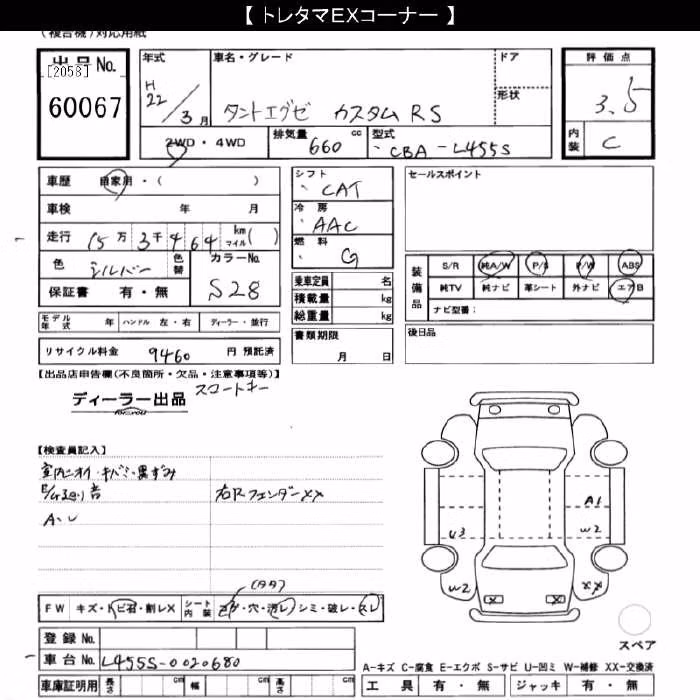 【 トレタマEXコーナー 】
(複合機)対応用紙
出品No.
[2058]
60067
年式 H22/3月
車名・グレード
タントエグゼ カスタムRS
ドア
形状
評価点
3.5
内装 C
2WD・4WD
排気量 660 cc
型式 CBA-L455S
車歴 自家用・( )
車検 年 月
走行 15万3千464 km マイル( )
色 シルバー 色替
カラーNo. S28
保証書 有・無
シフト CAT
冷房 AAC
燃料 G
乗車定員 名
積載量 kg
総重量 kg
書類期限
月 日
セールスポイント
装備品
S/R 純A/W P/S P/W ABS
純TV 純ナビ 革シート 外ナビ エアB
ナビ型番:
後日品
モデル年式 年 ハンドル 左・右 ディーラー・並行
リサイクル料金 9460 円 預託済
【出品店申告欄(不良箇所・欠品・注意事項等)】
ディーラー出品
for you
【検査員記入】
室内ニオイ・キバミ・黒ずみ
右Rフェンダーxx
A1
U3 W2
W2 XX
FW キズ・トビ石・割レX シート内装 コゲ・穴・汚レ シミ・破レ・スレ
登録No.
車台No. L455S-0020680
スペア
A-キズ C-腐食 E-エクボ S-サビ U-凹ミ W-補修 XX-交換済
車庫証明用 長さ cm 幅 cm 高さ cm
工具 有・無 ジャッキ 有・無